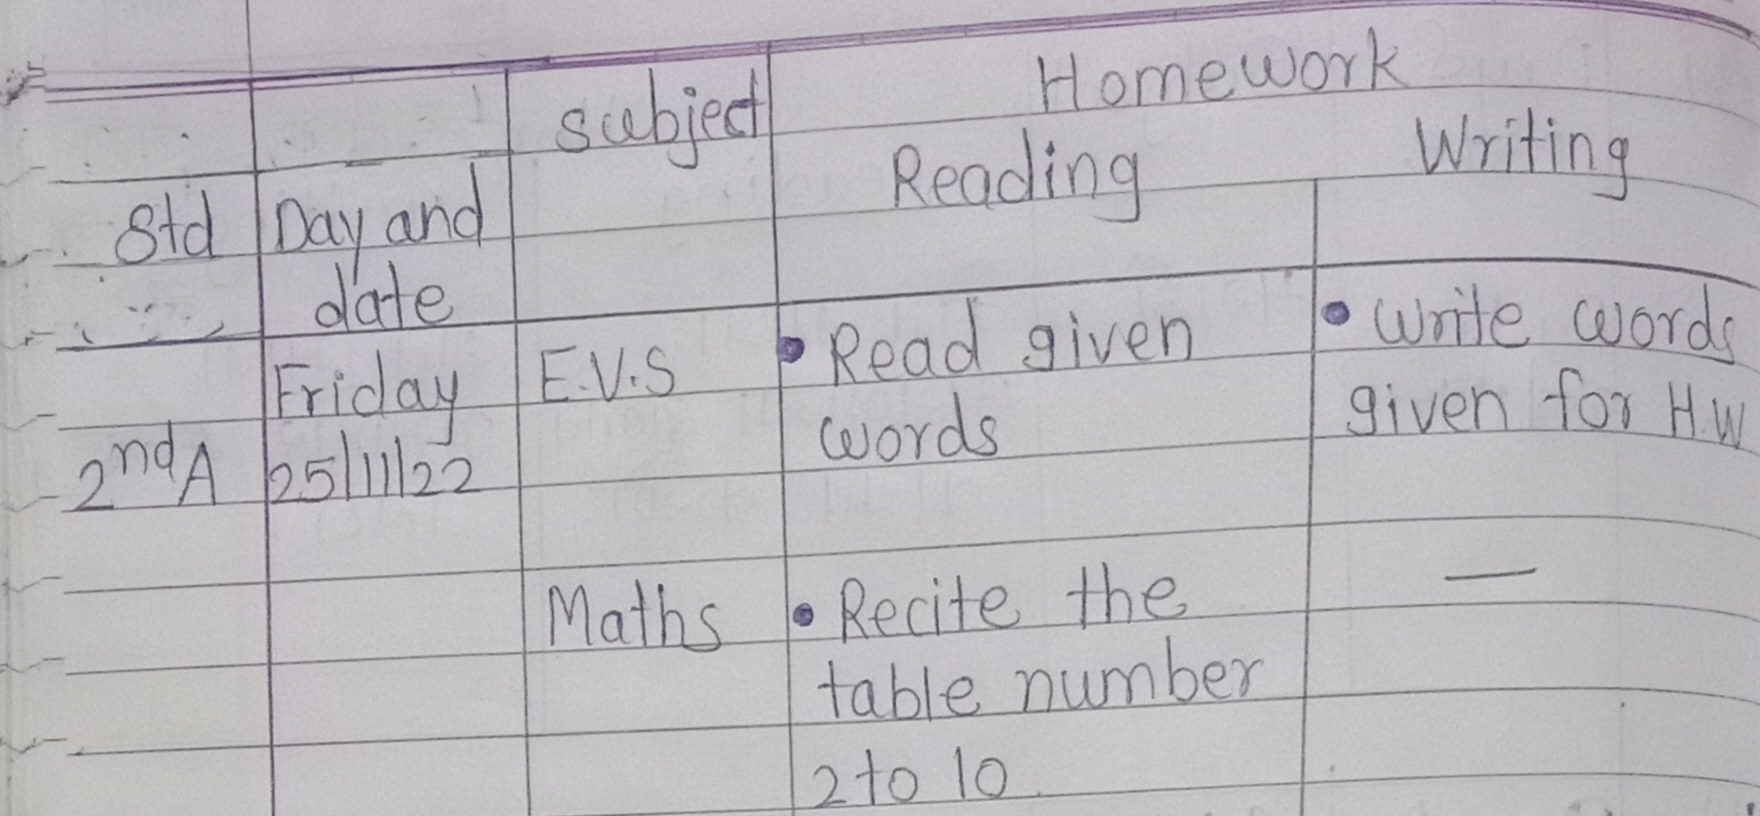 Homework
subject Reading Writing
Std Day and
date
Friday E.V.S • Read given • Write words
words given for H.W
2nd A 25/11/22
Maths • Recite the —
table number
2 to 10